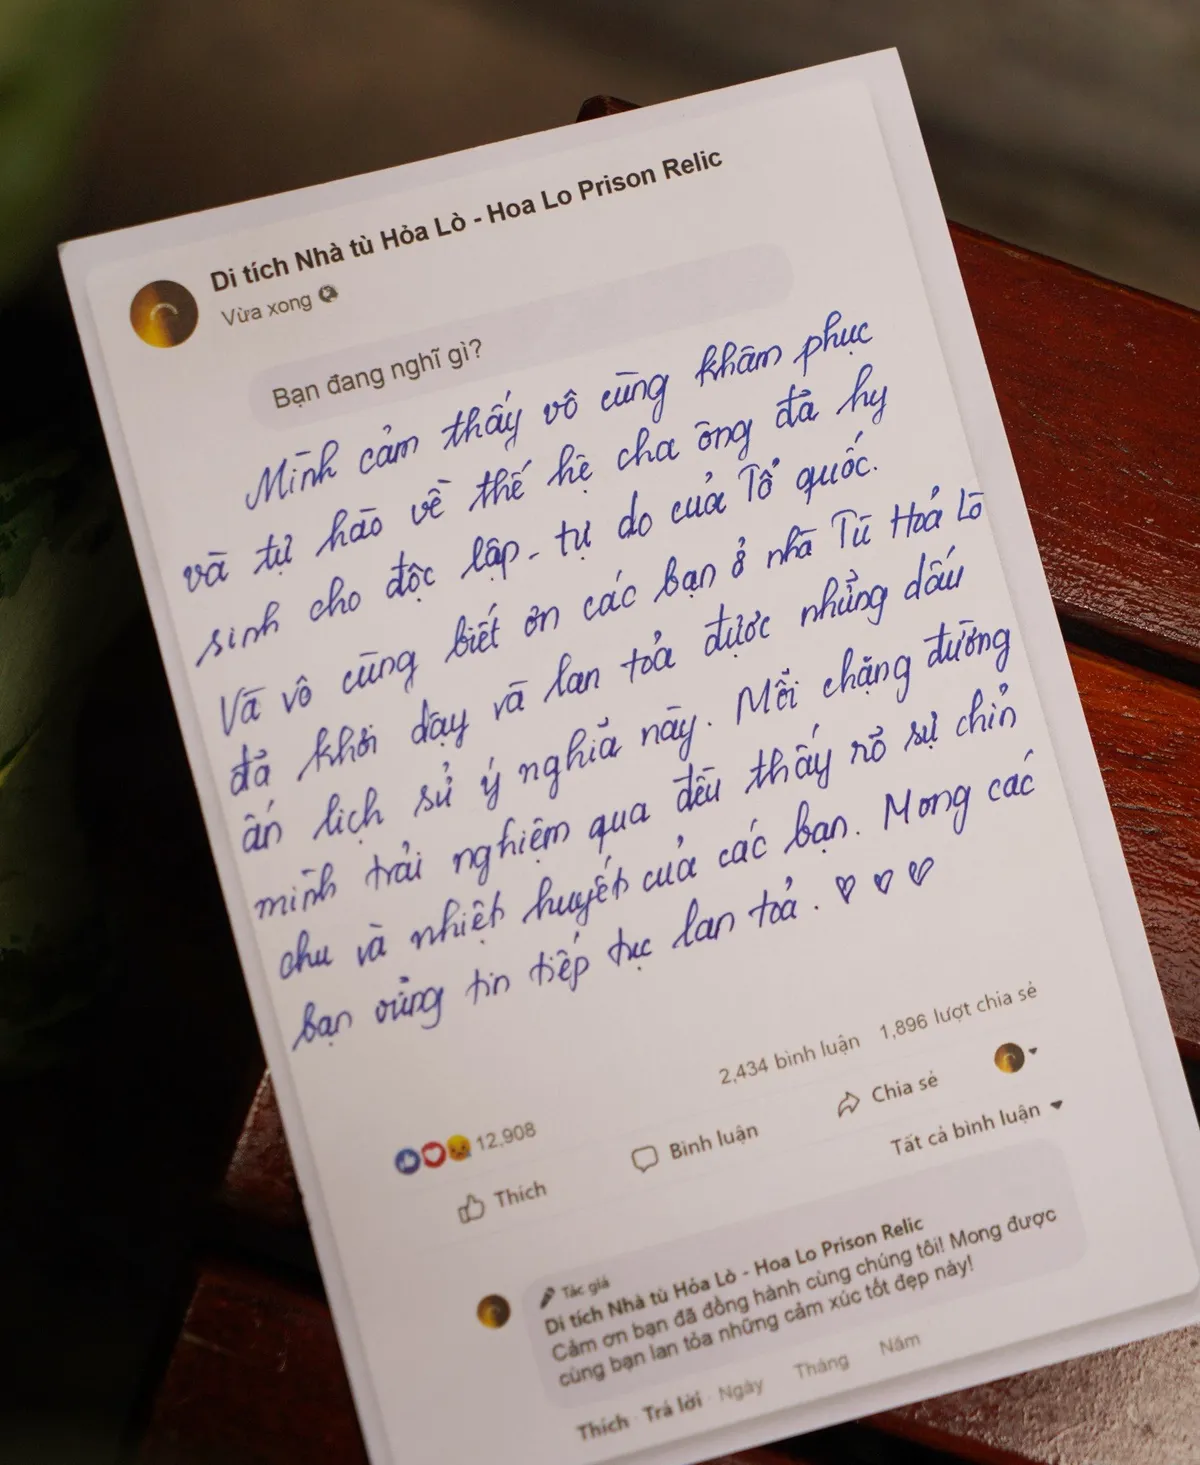 Di tích Nhà tù Hỏa Lò - Hoa Lo Prison Relic
Vừa xong
Bạn đang nghĩ gì?
Mình cảm thấy vô cùng khâm phục
và tự hào về thế hệ cha ông đã hy
sinh cho độc lập - tự do của Tổ quốc.
Và vô cùng biết ơn các bạn ở nhà Tù Hoả Lò
đã khơi dậy và lan toả được những dấu
ấn lịch sử ý nghĩa này. Mỗi chặng đường
mình trải nghiệm qua đều thấy rõ sự chỉn
chu và nhiệt huyết của các bạn. Mong các
bạn vững tin tiếp tục lan toả. ♡ ♡ ♡
12,908
2,434 bình luận 1,896 lượt chia sẻ
Thích Bình luận Chia sẻ
Tất cả bình luận
Tác giả
Di tích Nhà tù Hỏa Lò - Hoa Lo Prison Relic
Cảm ơn bạn đã đồng hành cùng chúng tôi! Mong được
cùng bạn lan tỏa những cảm xúc tốt đẹp này!
Thích · Trả lời · Ngày Tháng Năm